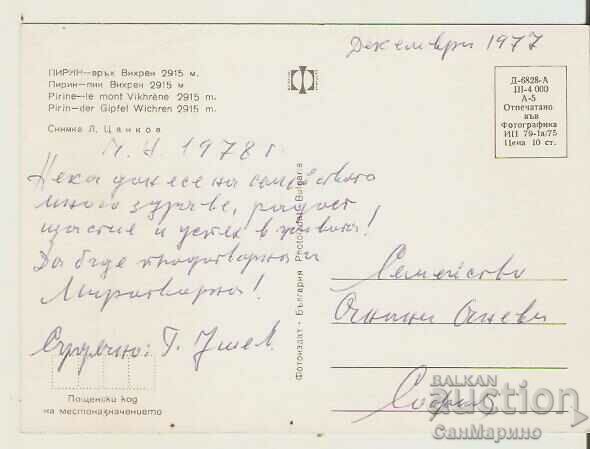 Декември 1977
ПИРИН—връх Вихрен 2915 м.
Пирин—пик Вихрен 2915 м.
Pirine—le mont Vikhrène 2915 m.
Pirin—der Gipfel Wichren 2915 m.
Снимка Л. Цанков
Д-6828-А
III-4 000
А-5
Отпечатано
във
Фотографика
ИП 79-1а/75
Цена 10 ст.
Ч. Н. 1978 г.
Нека донесе на семейството
много здраве, радост
щастие и успех в живота!
Да бъде плодотворна и
Миротворна!
Сърдечно: Г. Ушев.
Фотоиздат - България Photoizdat - Bulgaria
Семейство
Семейство
София
Пощенски код
на местоназначението
BALKAN
auction
СанМарино